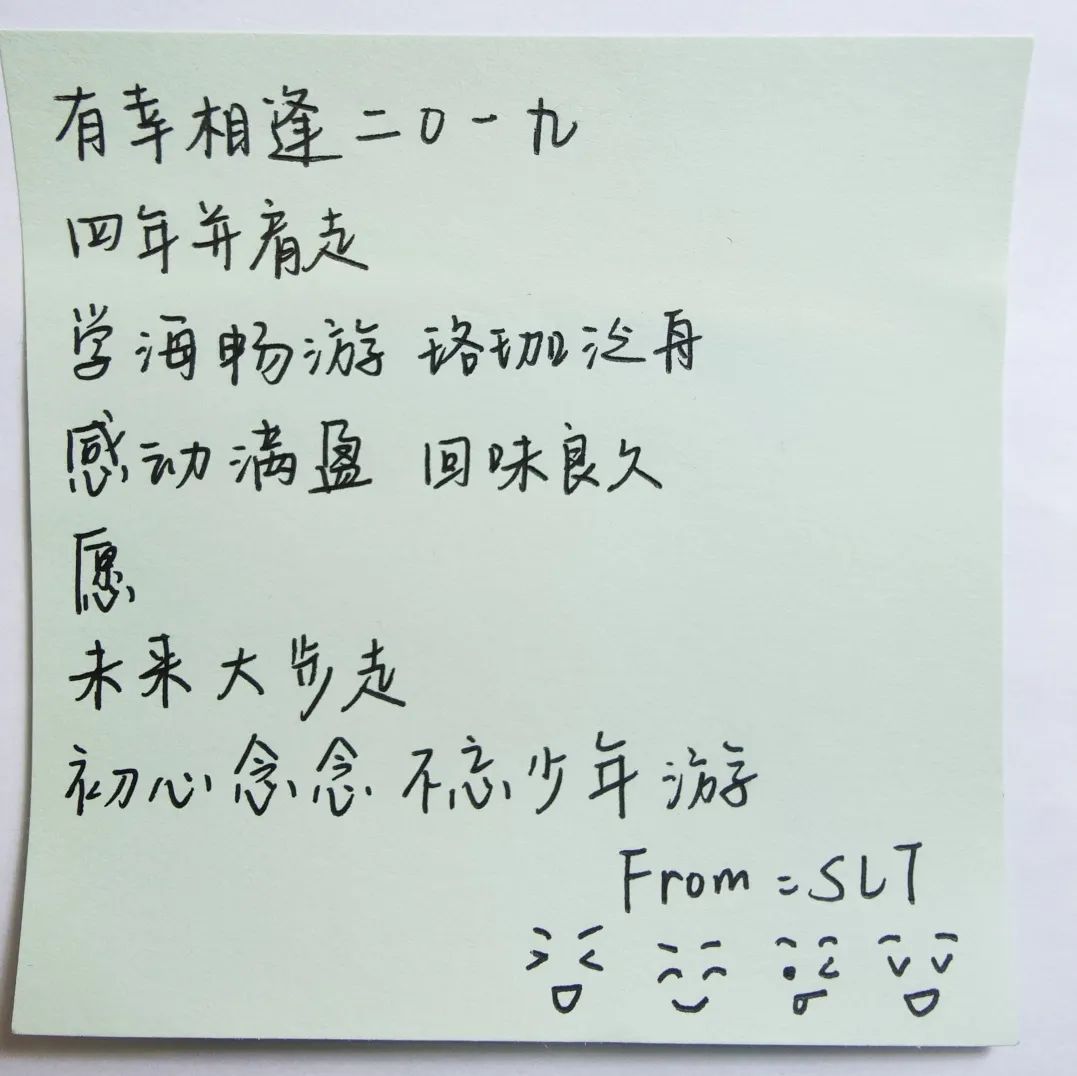 有幸相逢二〇一九
四年并肩走
学海畅游 珞珈泛舟
感动满盈 回味良久
愿
未来大步走
初心念念 不忘少年游
From:SLT